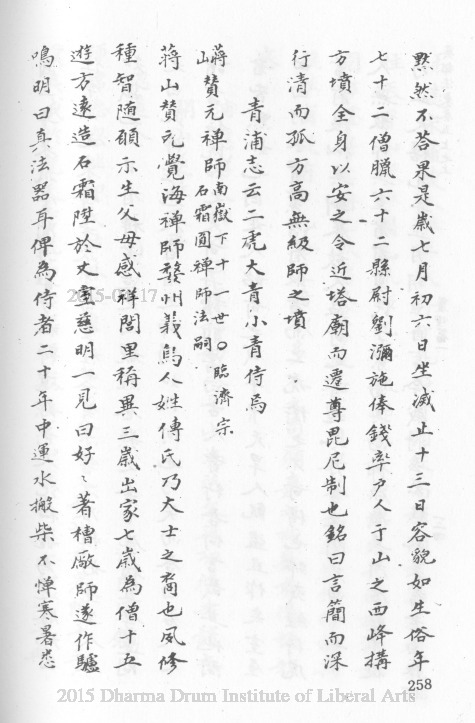 黙然不答果是歲七月初六日坐滅止十三日容貌如生俗年
七十一僧臘六十二縣尉劉瀰施俸錢率戶人于山之西峰搆
方墳全身以安之令近塔廟而遷尊毘尼制也銘曰言簡而深
行清而孤方高無級師之墳
青浦志云二虎大青小青侍焉
蔣山贊元禪師南嶽下十一世〇臨濟宗石霜圓禪師法嗣
蔣山贊元覺海禪師婺州義烏人姓傅氏乃大士之裔也夙修
種智随願示生父母感祥閭里稱異三歲出家七歲為僧十五
遊方遠造石霜陞於丈室慈明一見曰好〻著槽廠師遂作驢
鳴明曰真法器耳俾為侍者二十年中運水搬柴不憚寒暑悉
258
2015-03-17
2015 Dharma Drum Institute of Liberal Arts